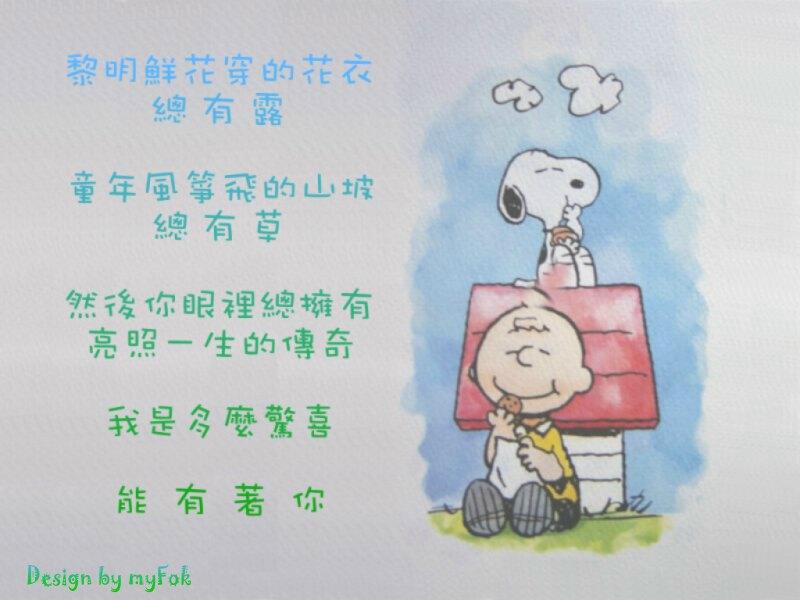 黎明鮮花穿的花衣
總有露
童年風箏飛的山坡
總有草
然後你眼裡總擁有
亮照一生的傳奇
我是多麼驚喜
能有著你
Design by myFok